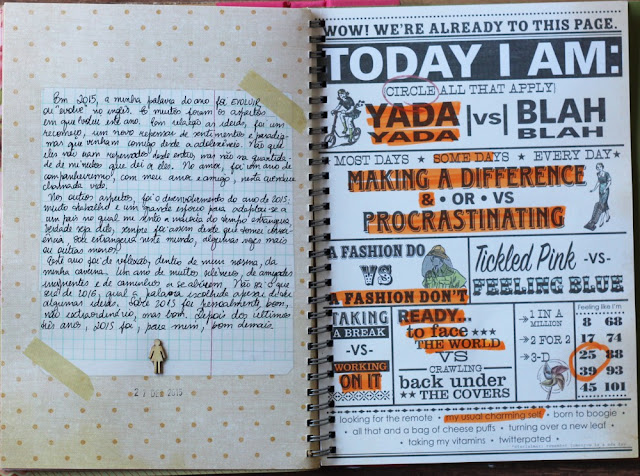 Em 2015, a minha palavra do ano foi EVOLUIR
ou "evolve" no inglês. E muitos foram os aspectos
em que evoluí este ano. Com relação às ideias, foi um
recomeço, um novo repensar de sentimentos e paradig-
mas que vinham comigo desde a adolescência. Não que
eles não eram repensados desde então, mas não na quantida-
de de minutos que dei a eles. No amor, foi um ano de
companheirismo, com meu amor e amigo, nesta quen
chamada vida.
Nos outros aspectos, foi o desenvolvimento do ano de 2015:
muito trabalho e um grande esforço para adaptar-se a
um país no qual me sinto a maioria do tempo estrangeira.
Verdade seja dita, sempre foi assim desde que tomei consci-
ência. Sou estrangeira neste mundo, algumas vezes mais
ou outras menos.
Este ano foi de reflexão, dentro de mim mesma, da
minha caverna. Um ano de muitos silêncios, de amizades
e de caminhos a se abrirem. Não sei o que
será de 2016, qual a palavra escolhida apesar de
algumas ideias. Sobre 2015 foi pessoalmente bom,
não extraordinário, mas bom. Depois dos últimos
três anos, 2015 foi, para mim, bom demais.
27 DEC 2015
WOW! WE'RE ALREADY TO THIS PAGE.
TODAY I AM:
(CIRCLE ALL THAT APPLY)
YADA YADA |VS| BLAH BLAH
MOST DAYS ★ SOME DAYS ★ EVERY DAY
MAKING A DIFFERENCE
& • OR • VS
PROCRASTINATING
A FASHION DO
VS
A FASHION DON'T
Tickled Pink -VS-
FEELING BLUE
TAKING
A BREAK
-VS-
WORKING
ON IT
READY...
to face ★★★
THE WORLD
VS
CRAWLING
back under
THE COVERS
1 IN A
MILLION
2 FOR 2
3-D
Feeling like I'm
8 68
17 74
25 88
39 93
45 101
looking for the remote • my usual charming self • born to boogie •
• all that and a bag of cheese puffs • turning over a new leaf •
taking my vitamins • twitterpated •